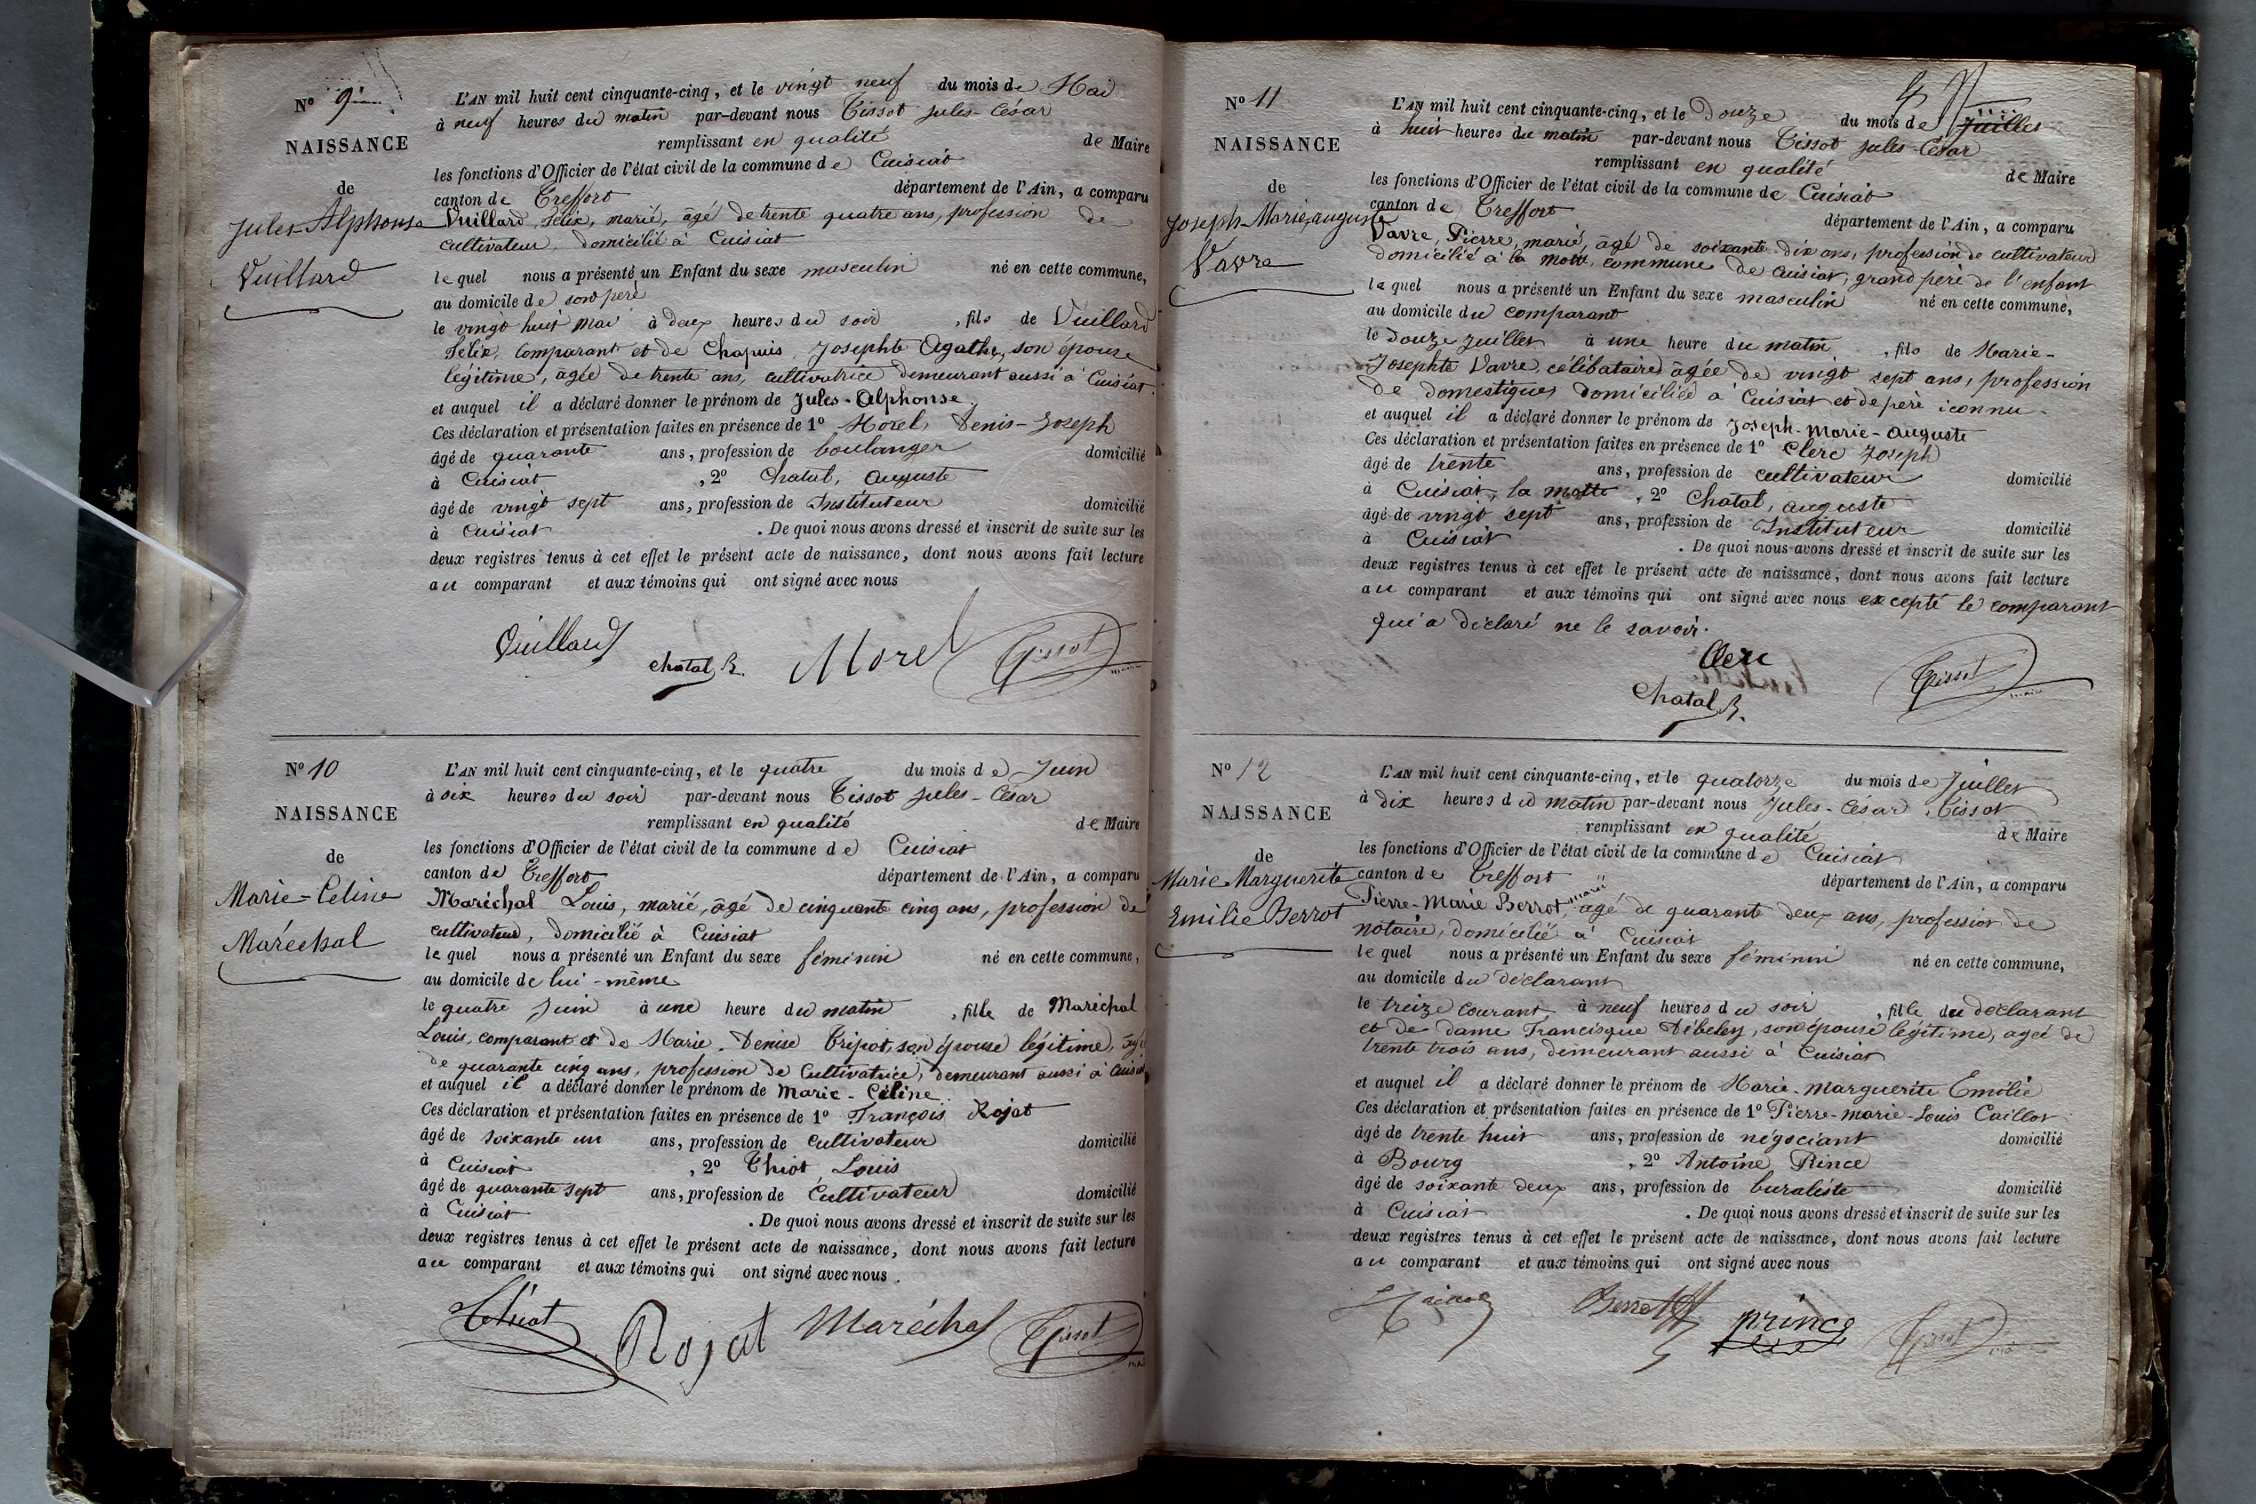 Nº 9
NAISSANCE
de
Jules-Alphonse
Vuillard
L'AN mil huit cent cinquante-cinq, et le vingt neuf du mois de Mai
à neuf heures du matin par-devant nous Tissot Jules-César
remplissant en qualité de Maire
les fonctions d'Officier de l'état civil de la commune de Cuisiat
canton de Treffort département de l'Ain, a comparu
Vuillard, Félix, marié, âgé de trente quatre ans, profession de
cultivateur, domicilié à Cuisiat
lequel nous a présenté un Enfant du sexe masculin né en cette commune,
au domicile de son père
le vingt huit mai à deux heures du soir, fils de Vuillard
Félix, comparant et de Chapuis, Josephte Agathe, son épouse
légitime, âgée de trente ans, cultivatrice demeurant aussi à Cuisiat
et auquel il a déclaré donner le prénom de Jules-Alphonse
Ces déclaration et présentation faites en présence de 1º Morel, Denis-Joseph
âgé de quarante ans, profession de boulanger domicilié
à Cuisiat, 2º Chatal, Auguste
âgé de vingt sept ans, profession de Instituteur domicilié
à Cuisiat. De quoi nous avons dressé et inscrit de suite sur les
deux registres tenus à cet effet le présent acte de naissance, dont nous avons fait lecture
au comparant et aux témoins qui ont signé avec nous
Vuillard Chatal Morel Tissot
Nº 10
NAISSANCE
de
Marie-Celine
Maréchal
L'AN mil huit cent cinquante-cinq, et le quatre du mois de Juin
à six heures du soir par-devant nous Tissot Jules-César
remplissant en qualité de Maire
les fonctions d'Officier de l'état civil de la commune de Cuisiat
canton de Treffort département de l'Ain, a comparu
Maréchal Louis, marié, âgé de cinquante cinq ans, profession de
cultivateur, domicilié à Cuisiat
lequel nous a présenté un Enfant du sexe féminin né en cette commune,
au domicile de lui-même
le quatre Juin à une heure du matin, fille de Maréchal
Louis, comparant et de Marie-Denise Tripot, son épouse légitime, âgée
de quarante cinq ans, profession de Cultivatrice, demeurant aussi à Cuisiat
et auquel il a déclaré donner le prénom de Marie-Céline
Ces déclaration et présentation faites en présence de 1º François Rojat
âgé de soixante un ans, profession de cultivateur domicilié
à Cuisiat, 2º Thiot Louis
âgé de quarante sept ans, profession de Cultivateur domicilié
à Cuisiat. De quoi nous avons dressé et inscrit de suite sur les
deux registres tenus à cet effet le présent acte de naissance, dont nous avons fait lecture
au comparant et aux témoins qui ont signé avec nous.
Thiot Rojat Maréchal Tissot
Nº 11
NAISSANCE
de
Joseph-Marie-Auguste
Vavre
L'AN mil huit cent cinquante-cinq, et le Douze du mois de Juillet
à huit heures du matin par-devant nous Tissot Jules-César
remplissant en qualité de Maire
les fonctions d'Officier de l'état civil de la commune de Cuisiat
canton de Treffort département de l'Ain, a comparu
Vavre, Pierre, marié, âgé de soixante-dix ans, profession de cultivateur
domicilié à la motte, commune de Cuisiat, grand père de l'enfant
lequel nous a présenté un Enfant du sexe masculin né en cette commune,
au domicile du comparant
le Douze Juillet à une heure du matin, fils de Marie-
Josephte Vavre, célibataire, âgée de vingt sept ans, profession
de domestique, domiciliée à Cuisiat et de père iconnu
et auquel il a déclaré donner le prénom de Joseph-Marie-Auguste
Ces déclaration et présentation faites en présence de 1º Clerc Joseph
âgé de trente ans, profession de cultivateur domicilié
à Cuisiat, la motte, 2º Chatal, Auguste
âgé de vingt sept ans, profession de Instituteur domicilié
à Cuisiat. De quoi nous avons dressé et inscrit de suite sur les
deux registres tenus à cet effet le présent acte de naissance, dont nous avons fait lecture
au comparant et aux témoins qui ont signé avec nous excepté le comparant
qui a déclaré ne le savoir.
Clerc
Chatal Tissot
Nº 12
NAISSANCE
de
Marie Marguerite
Emilie Berrot
L'AN mil huit cent cinquante-cinq, et le quatorze du mois de Juillet
à dix heures du matin par-devant nous Jules-César Tissot
remplissant en qualité de Maire
les fonctions d'Officier de l'état civil de la commune de Cuisiat
canton de Treffort département de l'Ain, a comparu
Pierre-Marie Berrot, marié âgé de quarante deux ans, profession de
notaire, domicilié à Cuisiat
lequel nous a présenté un Enfant du sexe féminin né en cette commune,
au domicile du déclarant
le treize courant à neuf heures du soir, fille du déclarant
et de dame Francisque Débeley, son épouse légitime, agée de
trente trois ans, demeurant aussi à Cuisiat
et auquel il a déclaré donner le prénom de Marie-Marguerite Emilie
Ces déclaration et présentation faites en présence de 1º Pierre-Marie-Louis Caillot
âgé de trente huit ans, profession de négociant domicilié
à Bourg, 2º Antoine Prince
âgé de soixante deux ans, profession de buraliste domicilié
à Cuisiat. De quoi nous avons dressé et inscrit de suite sur les
deux registres tenus à cet effet le présent acte de naissance, dont nous avons fait lecture
au comparant et aux témoins qui ont signé avec nous
Berrot prince Tissot